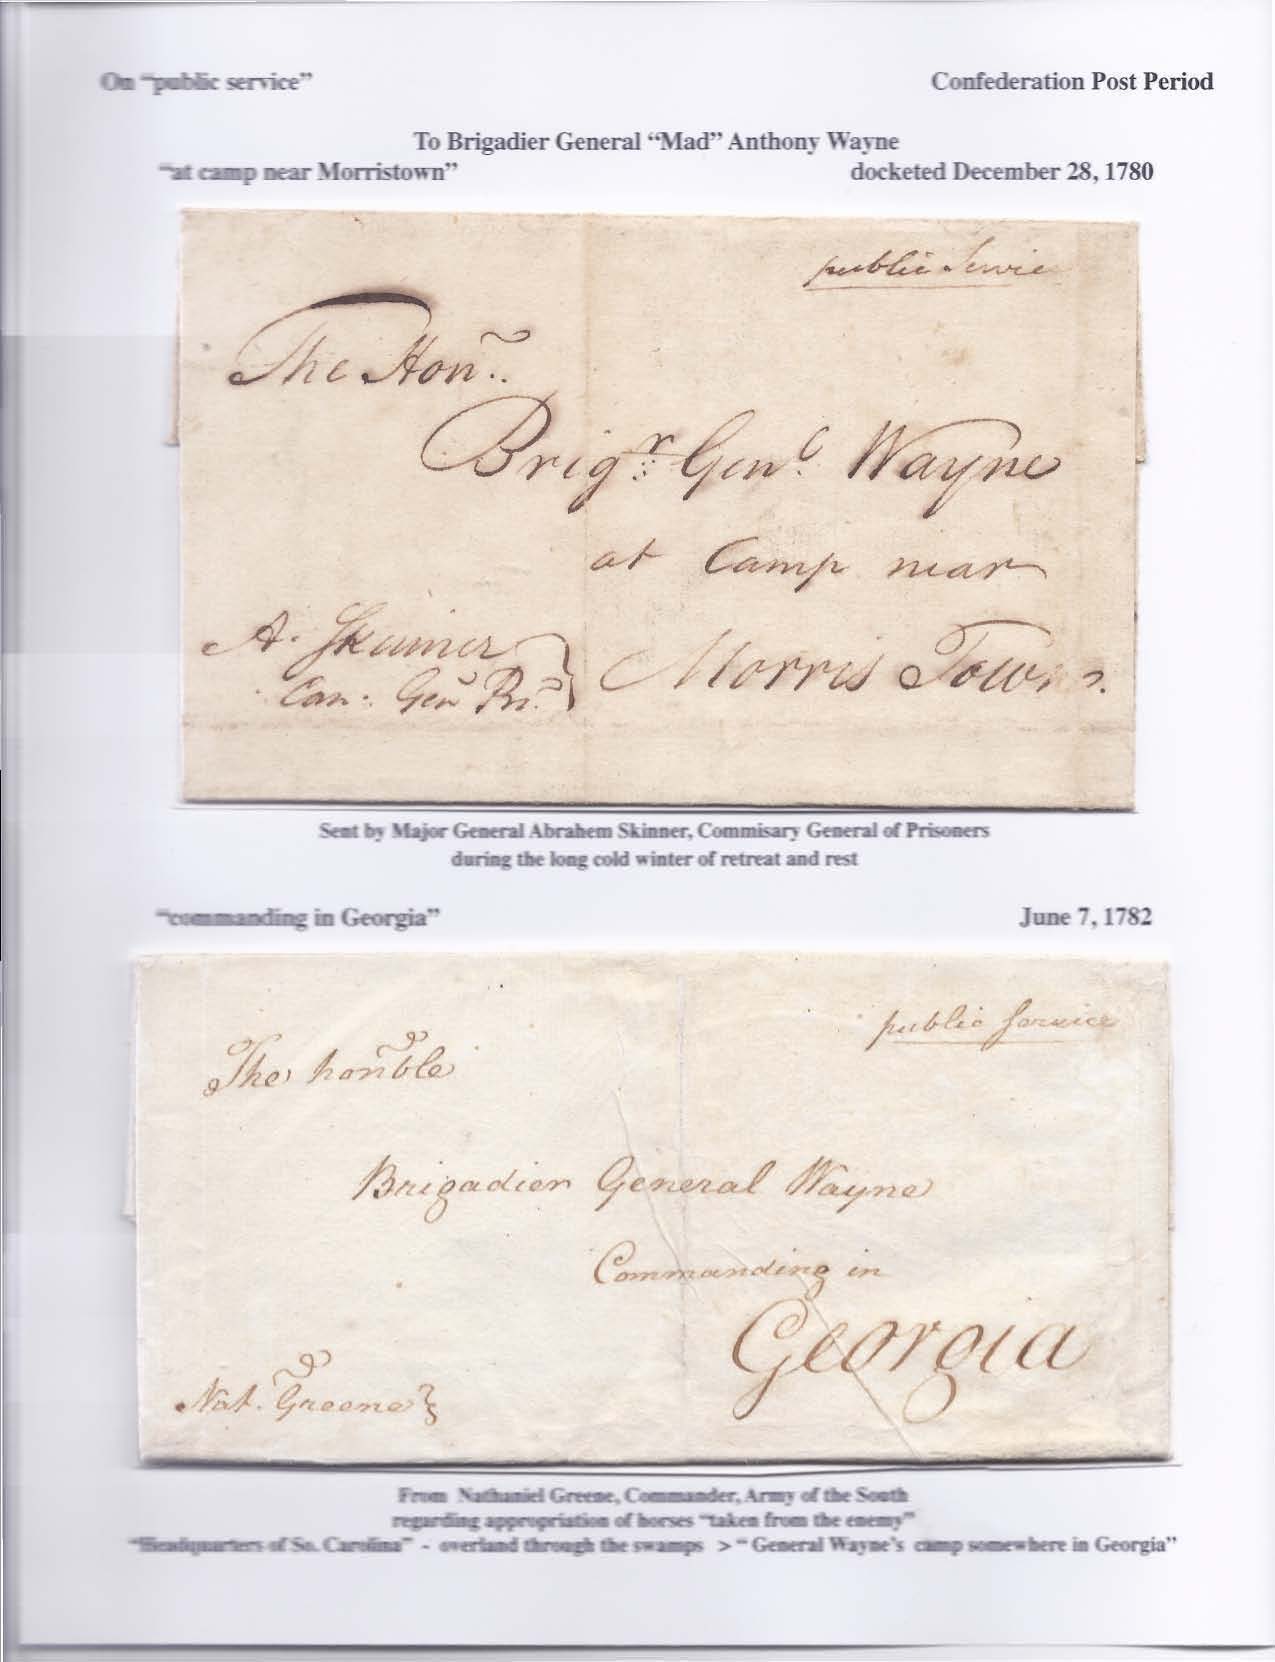 On “public service”
Confederation Post Period
To Brigadier General “Mad” Anthony Wayne
“at camp near Morristown”
docketed December 28, 1780
public Servic
The Honr.
Brigr. Genl. Wayne
at Camp near
Morris Town.
A. Skinner
Com: Genl Pris.
Sent by Major General Abrahem Skinner, Commisary General of Prisoners
during the long cold winter of retreat and rest
“commanding in Georgia”
June 7, 1782
public Service
The honble
Brigadier General Wayne
Commanding in
Georgia
Nat. Greene
From Nathaniel Greene, Commander, Army of the South
regarding appropriation of horses “taken from the enemy”
“Headquarters of So. Carolina” - overland through the swamps > “ General Wayne’s camp somewhere in Georgia”